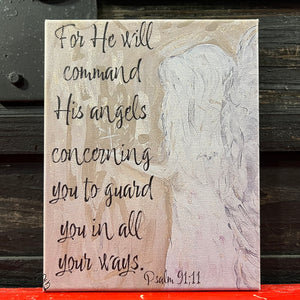 For He will
command
His angels
concerning
you to guard
you in all
your ways.
Psalm 91:11